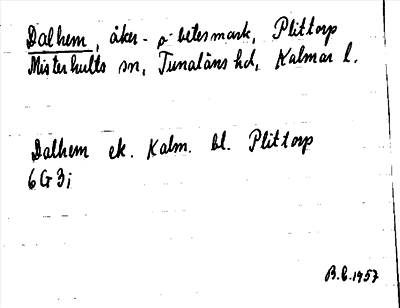 Dalhem, åker- o betesmark, Plittorp
Misterhults sn, Tunaläns hd, Kalmar l.
Dalhem ek. Kalm. bl. Plittorp
6G3i
B.L.1957